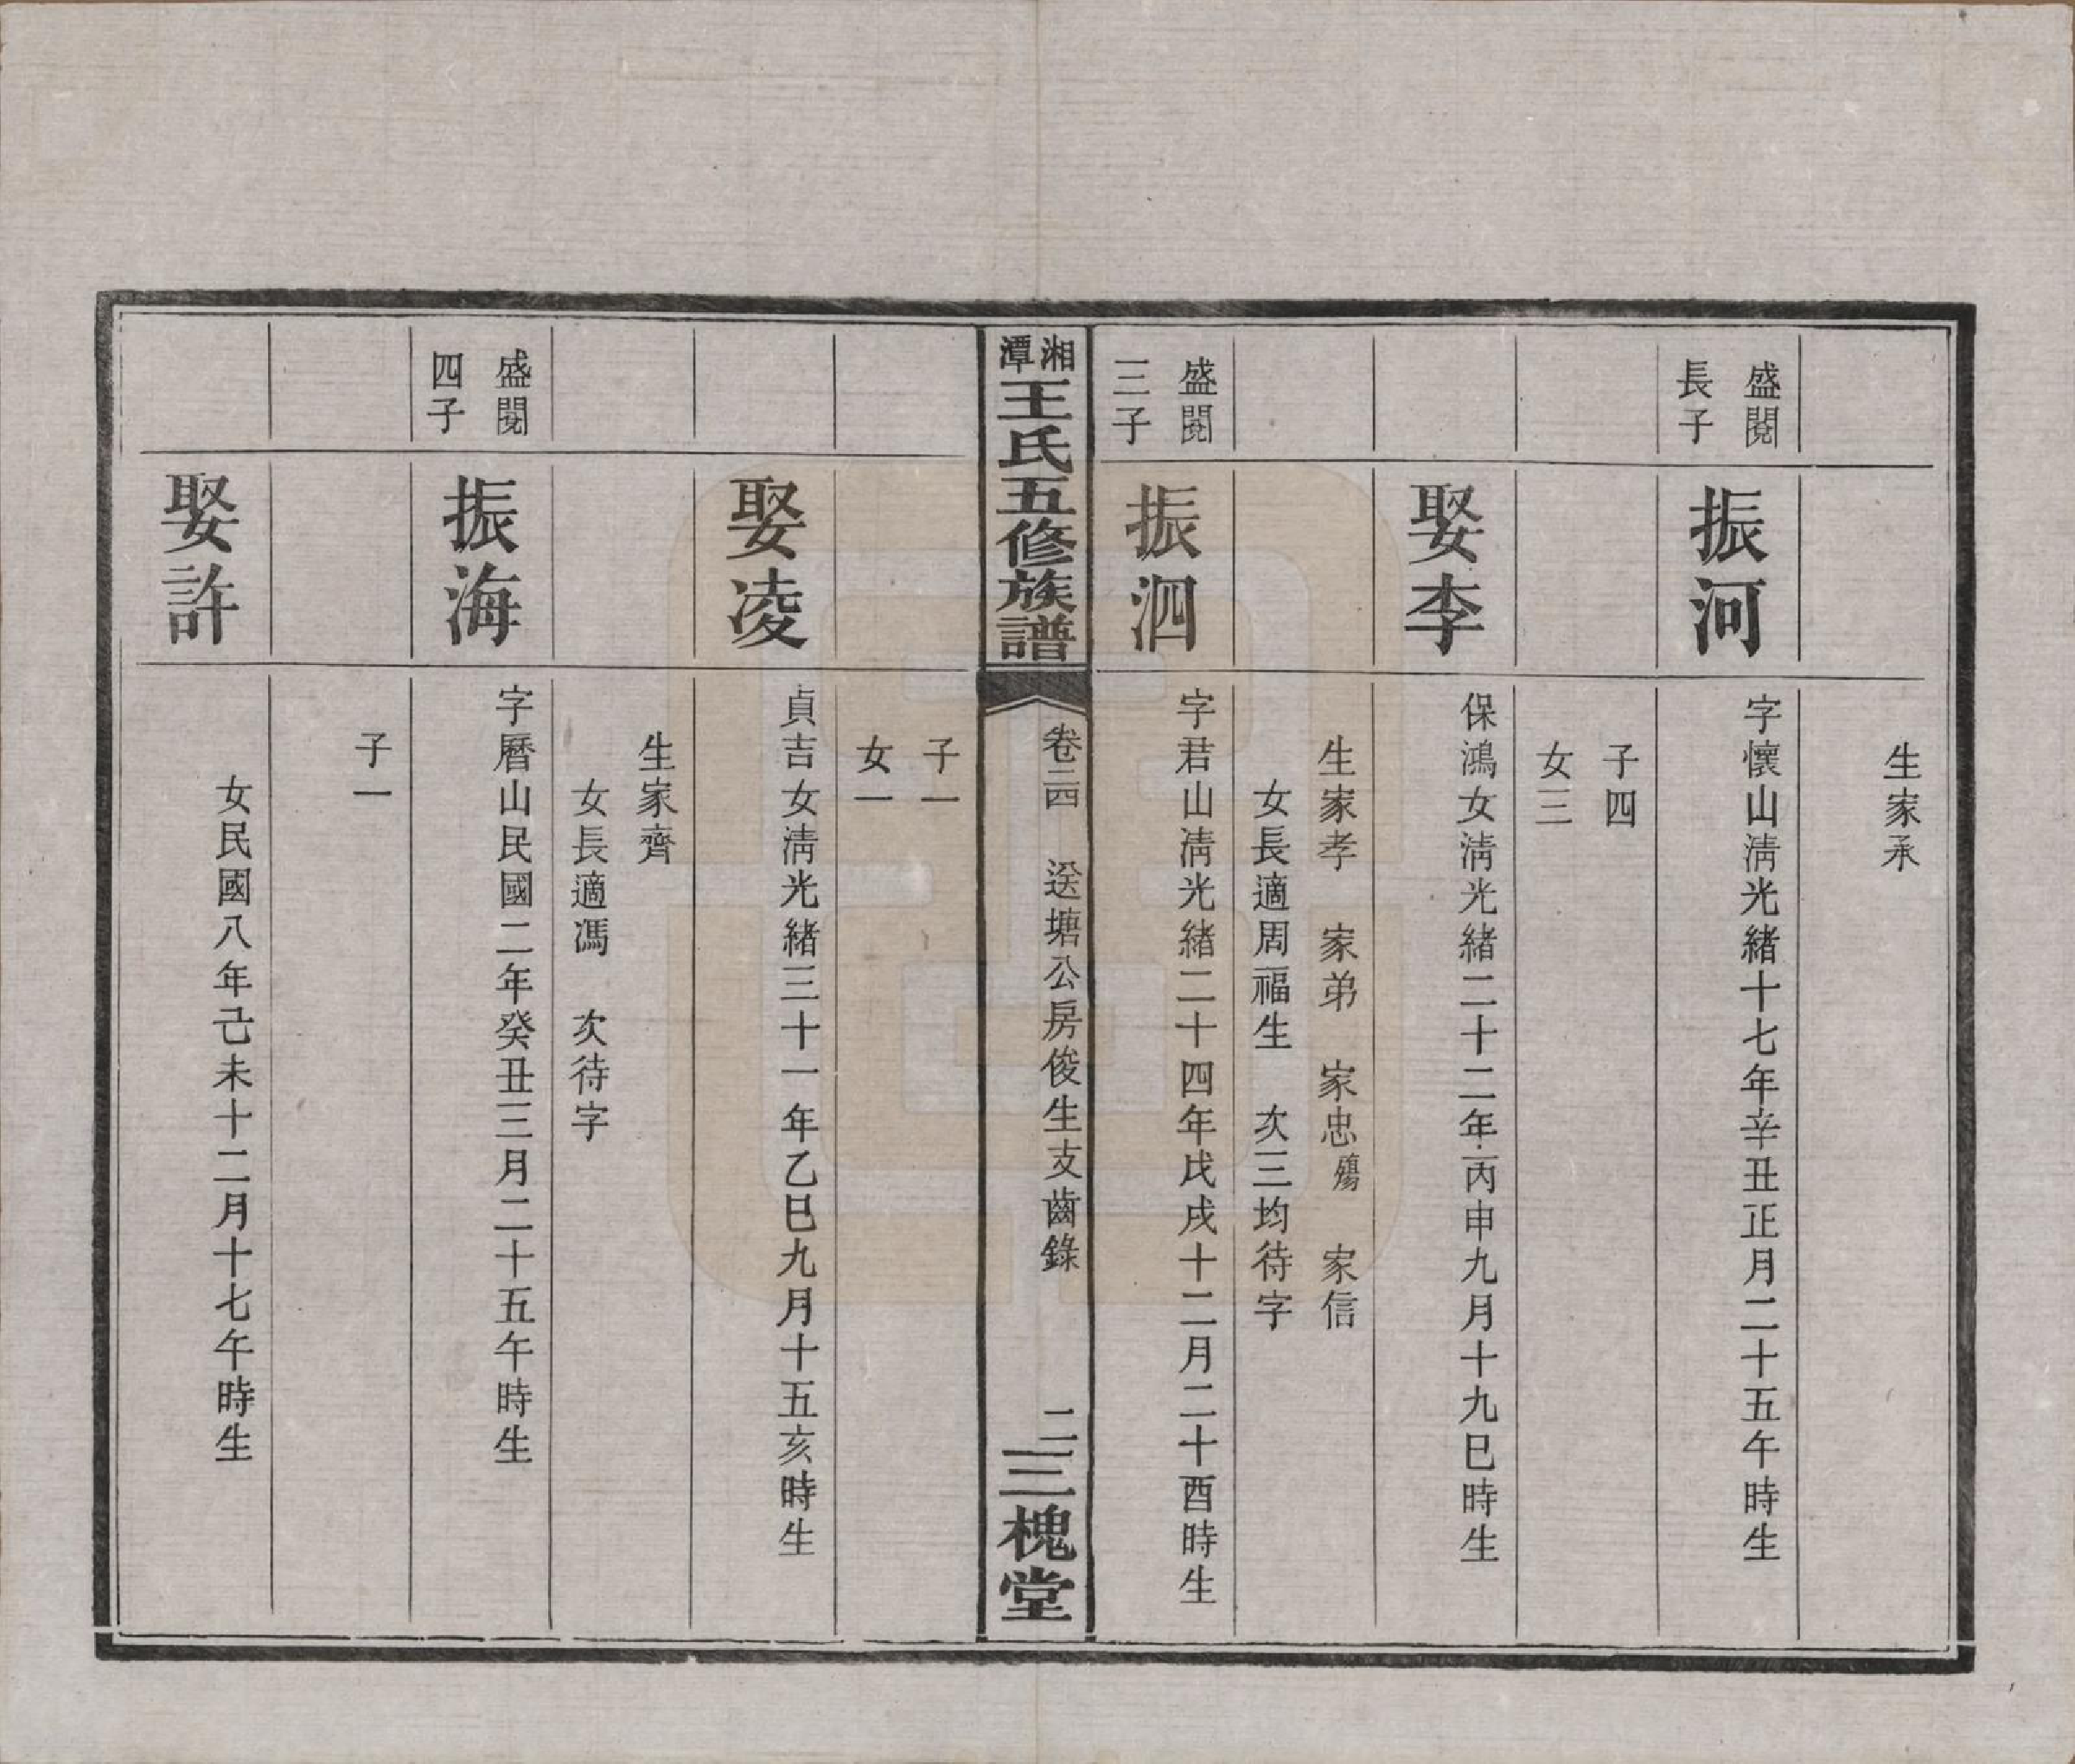 生家承
盛閱
長子
振河
字懷山淸光緒十七年辛丑正月二十五午時生
子四
女三
娶李
保鴻女淸光緒二十二年丙申九月十九巳時生
生家孝 家弟 家忠殤 家信
女長適周福生 次三均待字
盛閱
三子
振泗
字君山淸光緒二十四年戊戌十二月二十酉時生
湘潭王氏五修族譜
卷二四 送塘公房俊生支齒錄
二
三槐堂
子一
女一
娶凌
貞吉女淸光緒三十一年乙巳九月十五亥時生
生家齊
女長適馮 次待字
盛閱
四子
振海
字曆山民國二年癸丑三月二十五午時生
子一
娶許
女民國八年己未十二月十七午時生